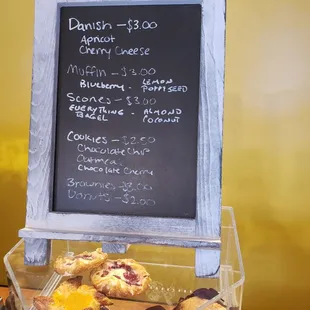 Danish - $3.00
Apricot
Cherry Cheese
Muffin - $3.00
Blueberry - LEMON POPPYSEED
Scones - $3.00
EVERYTHING BAGEL - ALMOND COCONUT
Cookies - $2.50
Chocolate Chip
Oatmeal
Chocolate Cherry
Brownies - $3.00
Donuts - $2.00